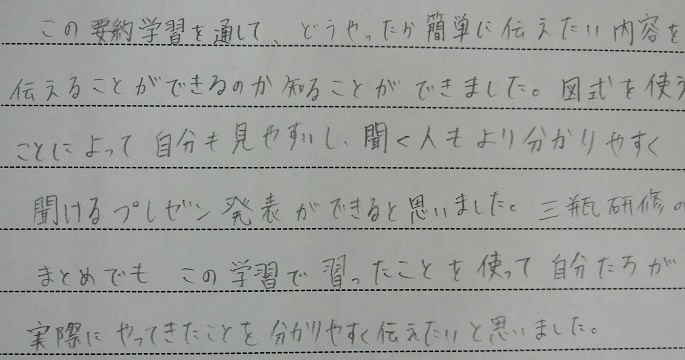 この要約学習を通して、どうやったか簡単に伝えたい内容を
伝えることができるのか知ることができました。図式を使え
ことによって自分も見やすいし、聞く人もより分かりやすく
聞けるプレゼン発表ができると思いました。三瓶研修の
まとめでも この学習で習ったことを使って自分たちが
実際にやってきたことを分かりやすく伝えたいと思いました。